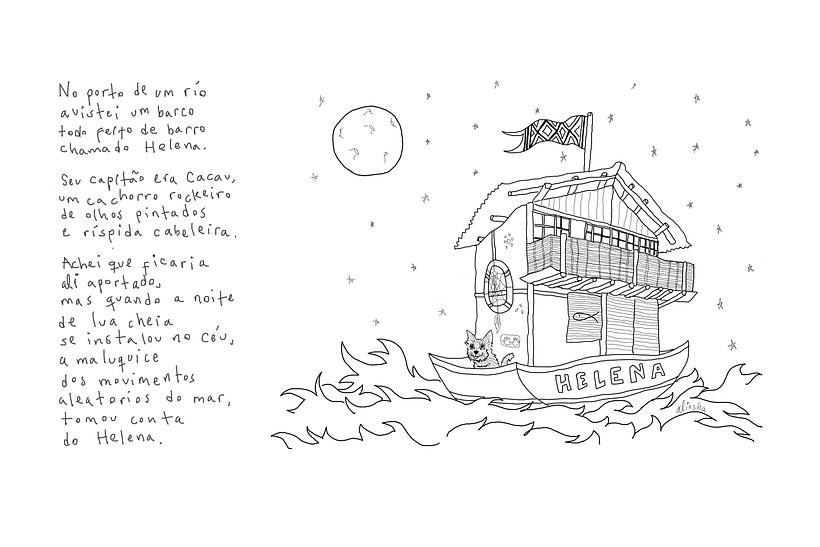 No porto de um rio
avistei um barco
todo feito de barro
chamado Helena.
Seu capitão era Cacau,
um cachorro rockeiro
de olhos pintados
e ríspida cabeleira.
Achei que ficaria
ali aportado,
mas quando a noite
de lua cheia
se instalou no céu,
a maluquice
dos movimentos
aleatorios do mar,
tomou conta
do Helena.
HELENA
aliosha